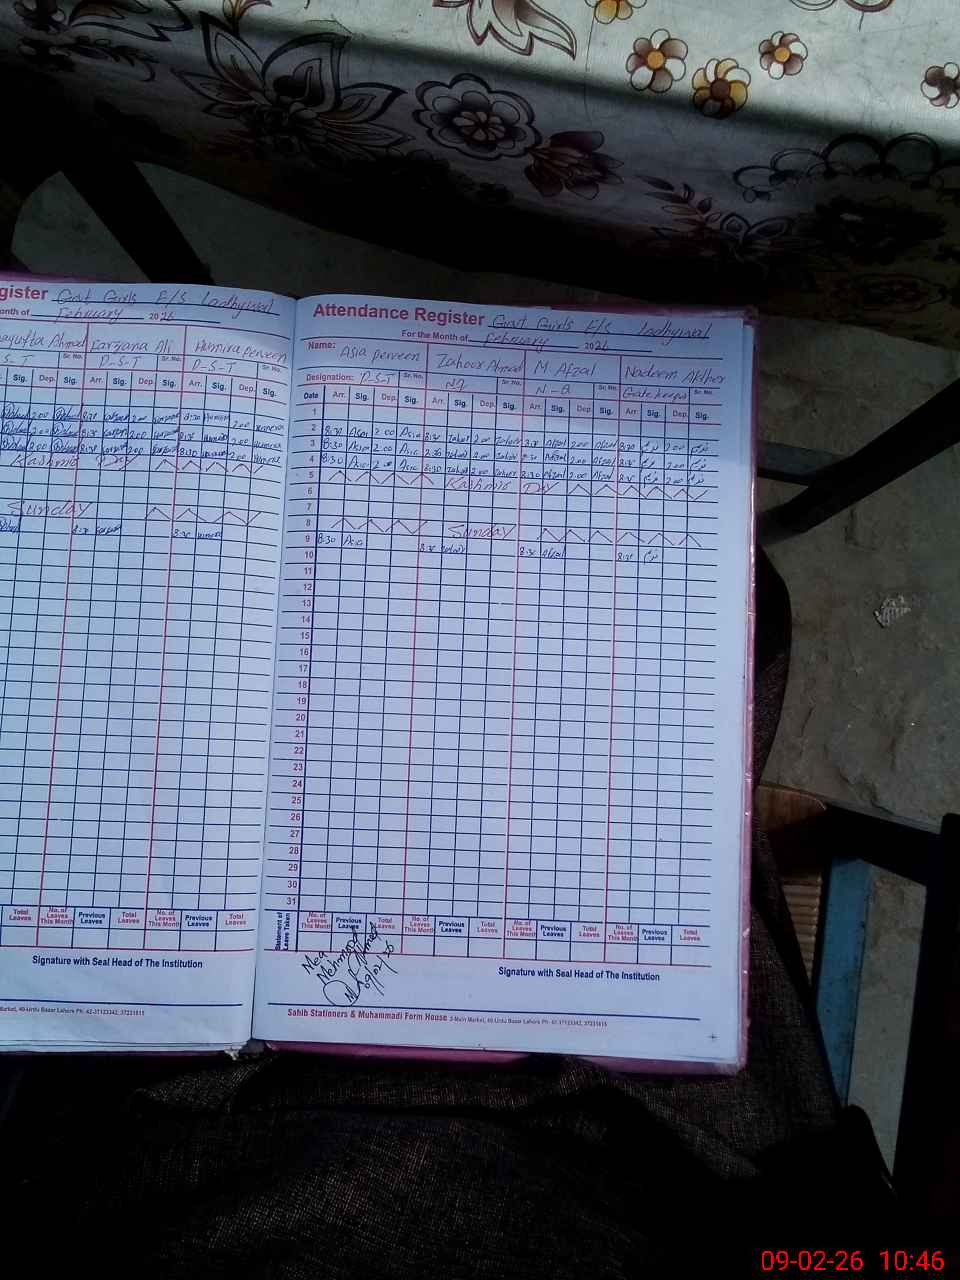 gister Govt Girls E/S Ladhywal
onth of February 2026
Ahmad Farzana Ali Humira perveen
S-T Sr. No. D-S-T Sr. No. D-S-T Sr. No.
Sig. Dep. Sig. Arr. Sig. Dep. Sig. Arr. Sig. Dep. Sig.
2.00 8:30 2.00 8:30 2.00
2.00 8:30 2.00 8:30 2.00
2.00 8:30 2.00 8:30 2.00
Kashmir Day
Sunday
8:30 8:30
Total Leaves No. of Leaves This Month Previous Leaves Total Leaves No. of Leaves This Month Previous Leaves Total Leaves
Signature with Seal Head of The Institution
Market, 40-Urdu Bazar Lahore Ph: 42-37123342, 37231015
Attendance Register Govt Girls E/S Ladhywal
For the Month of February 2026
Name: Asia perveen Zahoor Ahmad M Afzal Nadeem Akhter
Designation: P-S-T Sr. No. Sr. No. N-Q Sr. No. Gate keeper Sr. No.
Date Arr. Sig. Dep. Sig. Arr. Sig. Dep. Sig. Arr. Sig. Dep. Sig. Arr. Sig. Dep. Sig.
1
2 8:30 Asia 2.00 Asia 8:30 Zahoor 2.00 Zahoor 8:30 Afzal 2.00 Afzal 8:30 2.00
3 8:30 Asia 2.00 Asia 8:30 Zahoor 2.00 Zahoor 8:30 Afzal 2.00 Afzal 8:30 2.00
4 8:30 Asia 2.00 Asia 8:30 Zahoor 2.00 Zahoor 8:30 Afzal 2.00 Afzal 8:30 2.00
5 Kashmir Day
6
7
8 Sunday
9 8:30 Asia 8:30 Zahoor 8:30 Afzal 8:30
10
11
12
13
14
15
16
17
18
19
20
21
22
23
24
25
26
27
28
29
30
31
Statement of Leave Taken No. of Leaves This Month Previous Leaves Total Leaves No. of Leaves This Month Previous Leaves Total Leaves No. of Leaves This Month Previous Leaves Total Leaves No. of Leaves This Month Previous Leaves Total Leaves
Mea
09/02/26
Signature with Seal Head of The Institution
Sahib Stationers & Muhammadi Form House 3-Main Market, 40-Urdu Bazar Lahore Ph: 42-37123342, 37231015
09-02-26 10:46